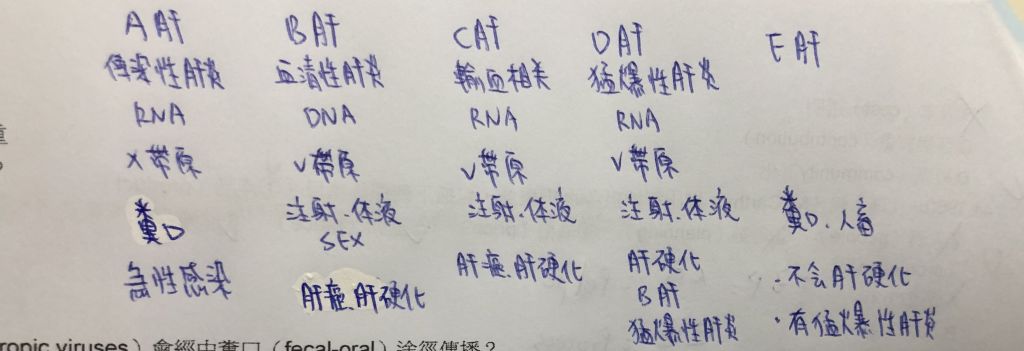 A肝 B肝 C肝 D肝 E肝
傳染性肝炎 血清性肝炎 輸血相关 猛爆性肝炎
RNA DNA RNA RNA
X帶原 V帶原 V帶原 V帶原
糞口 注射.体液 注射.体液 注射.体液 糞口.人畜
SEX
急性感染 肝癌.肝硬化 肝癌.肝硬化 肝硬化 ·不会肝硬化
B肝
猛爆性肝炎 ·有猛爆性肝炎
ropic viruses）會經由糞口（fecal-oral）途徑傳播？